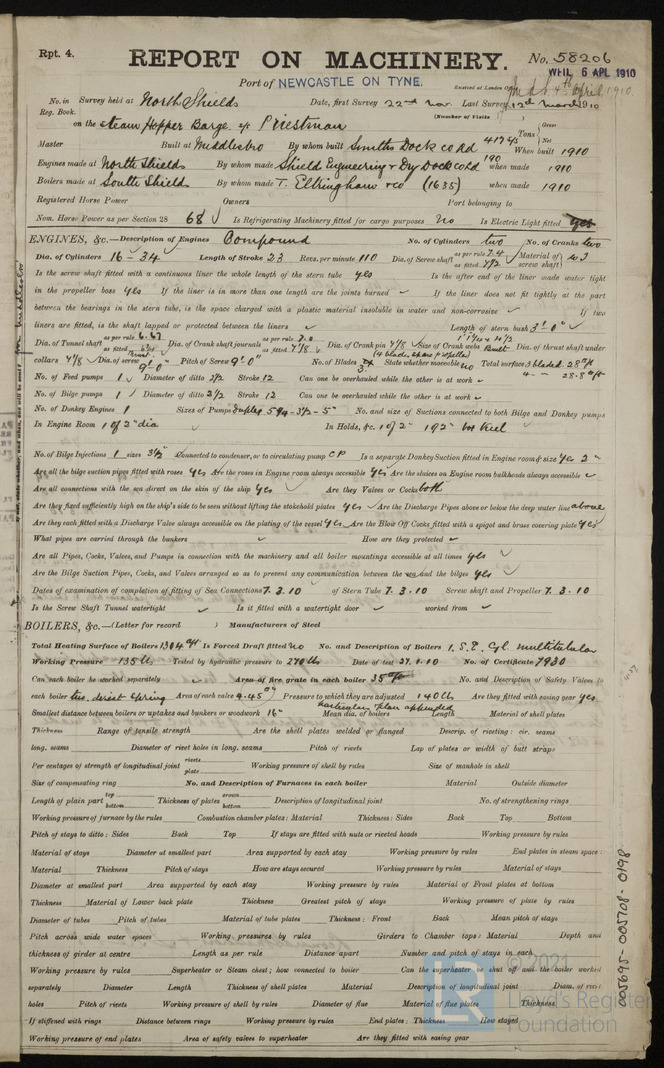 Rpt. 4.
REPORT ON MACHINERY.
No. 58206
WHL 6 APL 1910
Port of NEWCASTLE ON TYNE.
Received at London Office
No. in Survey held at North Shields Date, first Survey 22nd Nov. Last Survey 12th March 1910
Reg. Book.
(Number of Visits
on the Steam Hopper Barge s/s Priestman
Tons Gross Net
Master Built at Middlesbro By whom built Smiths Dock Co Ld When built 1910
Engines made at North Shields By whom made Shield Engineering & Dry Dock Co Ld when made 1910
Boilers made at South Shields By whom made T. Eltringham & Co (1635) when made 1910
Registered Horse Power Owners Port belonging to
Nom. Horse Power as per Section 28 68 Is Refrigerating Machinery fitted for cargo purposes No Is Electric Light fitted yes
ENGINES, &c.—Description of Engines Compound No. of Cylinders two No. of Cranks two
Dia. of Cylinders 16 - 34 Length of Stroke 23 Revs. per minute 110 Dia. of Screw shaft as per rule 7.4 as fitted 7 1/2 Material of screw shaft
Is the screw shaft fitted with a continuous liner the whole length of the stern tube yes Is the after end of the liner made water tight
in the propeller boss yes If the liner is in more than one length are the joints burned If the liner does not fit tightly at the part
between the bearings in the stern tube, is the space charged with a plastic material insoluble in water and non-corrosive If two
liners are fitted, is the shaft lapped or protected between the liners Length of stern bush 3' 0"
Dia. of Tunnel shaft as per rule 6.67 as fitted Dia. of Crank shaft journals as per rule 7.0 as fitted 7 1/8 Dia. of Crank pin 7 1/8 Size of Crank webs Built Dia. of thrust shaft under
collars 7 1/8 Dia. of screw 9' 0" Pitch of Screw 9' 0" No. of Blades 3 State whether moveable no Total surface 3 bladed 28
No. of Feed pumps 1 Diameter of ditto 2 1/2 Stroke 12 Can one be overhauled while the other is at work
No. of Bilge pumps 1 Diameter of ditto 2 1/2 Stroke 12 Can one be overhauled while the other is at work
No. of Donkey Engines 1 Sizes of Pumps duplex 5 1/4 - 3 1/2 - 5" No. and size of Suctions connected to both Bilge and Donkey pumps
In Engine Room 1 of 2" dia In Holds, &c. 1 of 2"
No. of Bilge Injections 1 sizes 3 1/2 Connected to condenser, or to circulating pump CP Is a separate Donkey Suction fitted in Engine room & size Yes 2"
Are all the bilge suction pipes fitted with roses yes Are the roses in Engine room always accessible yes Are the sluices on Engine room bulkheads always accessible
Are all connections with the sea direct on the skin of the ship yes Are they Valves or Cocks both
Are they fixed sufficiently high on the ship's side to be seen without lifting the stokehold plates yes Are the Discharge Pipes above or below the deep water line above
Are they each fitted with a Discharge Valve always accessible on the plating of the vessel yes Are the Blow Off Cocks fitted with a spigot and brass covering plate yes
What pipes are carried through the bunkers How are they protected
Are all Pipes, Cocks, Valves, and Pumps in connection with the machinery and all boiler mountings accessible at all times yes
Are the Bilge Suction Pipes, Cocks, and Valves arranged so as to prevent any communication between the sea and the bilges yes
Dates of examination of completion of fitting of Sea Connections 7. 3. 10 of Stern Tube 7. 3. 10 Screw shaft and Propeller 7. 3. 10
Is the Screw Shaft Tunnel watertight Is it fitted with a watertight door worked from
BOILERS, &c.—(Letter for record ) Manufacturers of Steel
Total Heating Surface of Boilers 1304 Is Forced Draft fitted no No. and Description of Boilers 1. S.E. Cyl. multitubular
Working Pressure 135 lb Tested by hydraulic pressure to 270 lb Date of test 27.1.10 No. of Certificate 7930
Can each boiler be worked separately Area of fire grate in each boiler 35 No. and Description of Safety Valves to
each boiler two. direct spring Area of each valve 4.45 Pressure to which they are adjusted 140 lb Are they fitted with easing gear yes
particulars plan appended
Smallest distance between boilers or uptakes and bunkers or woodwork 16" Mean dia. of boilers Length Material of shell plates
Thickness Range of tensile strength Are the shell plates welded or flanged Descrip. of riveting: cir. seams
long. seams Diameter of rivet holes in long. seams Pitch of rivets Lap of plates or width of butt straps
Per centages of strength of longitudinal joint rivets plate Working pressure of shell by rules Size of manhole in shell
Size of compensating ring No. and Description of Furnaces in each boiler Material Outside diameter
Length of plain part top bottom Thickness of plates crown bottom Description of longitudinal joint No. of strengthening rings
Working pressure of furnace by the rules Combustion chamber plates: Material Thickness: Sides Back Top Bottom
Pitch of stays to ditto: Sides Back Top If stays are fitted with nuts or riveted heads Working pressure by rules
Material of stays Diameter at smallest part Area supported by each stay Working pressure by rules End plates in steam space:
Material Thickness Pitch of stays How are stays secured Working pressure by rules Material of stays
Diameter at smallest part Area supported by each stay Working pressure by rules Material of Front plates at bottom
Thickness Material of Lower back plate Thickness Greatest pitch of stays Working pressure of plate by rules
Diameter of tubes Pitch of tubes Material of tube plates Thickness: Front Back Mean pitch of stays
Pitch across wide water spaces Working pressures by rules Girders to Chamber tops: Material Depth and
thickness of girder at centre Length as per rule Distance apart Number and pitch of stays in each
Working pressure by rules Superheater or Steam chest; how connected to boiler Can the superheater be shut off and the boiler worked
separately Diameter Length Thickness of shell plates Material Description of longitudinal joint Diam. of rivet
holes Pitch of rivets Working pressure of shell by rules Diameter of flue Material of flue plates Thickness
If stiffened with rings Distance between rings Working pressure by rules End plates: Thickness How stayed
Working pressure of end plates Area of safety valves to superheater Are they fitted with easing gear
005695-005708-0198
© 2021
Lloyd's Register
Foundation